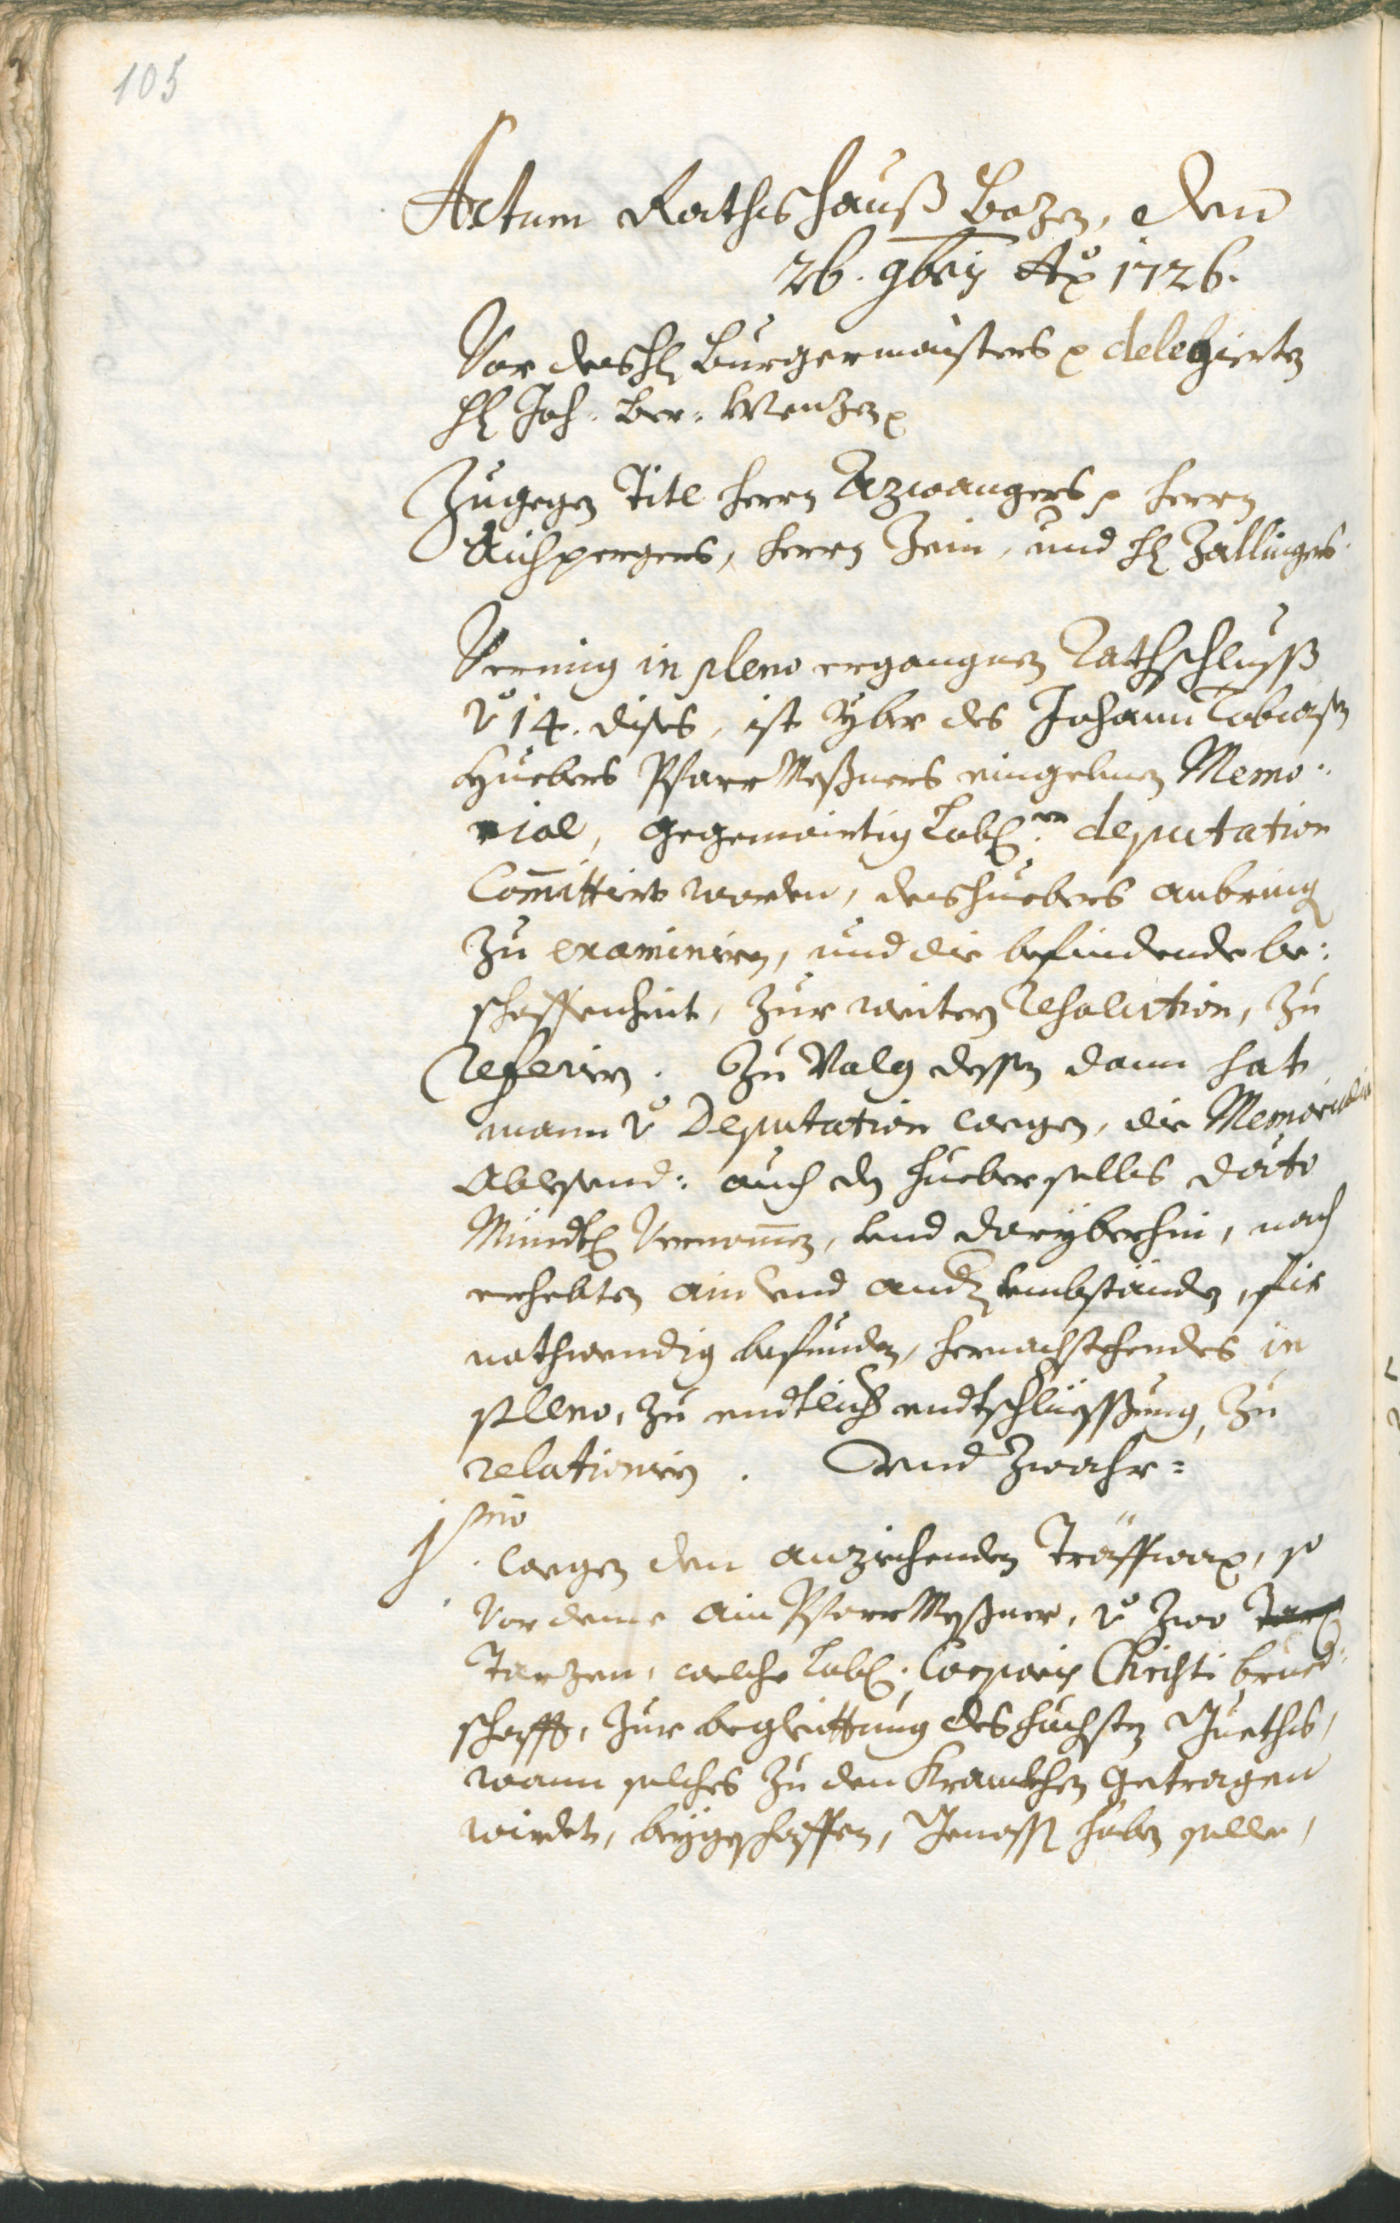 105
Actum Rathshauß Bozen, den
26. 9bris Ao 1726.
Vor des H: Burgermaisters p delegierten
H: Joh: Ber: Wenzen p
Zugegen Titl Herrn Azwangers p Herrn
Aichpergers, Herrn Jein, und H: Zallingers
Vermig in pleno ergangnen Rathschluß
vo 14. dises, ist yber des Johann Tobiasen
Huebers Pfarr Meßners eingeben Memo:
rial, gegenwärtig Lobl:er deputation
Committirt worden, des Huebers anbring
zu examiniren, und die befindende be:
schaffenheit, zur weitern Resolution, zu
Referirn. Zu Volg dessen dann hat
mann vo Deputation wegen, die Memorialia
Ablesend: auch den Hueber selbs dato
Mündl: Vernomen, und daryberhin, nach
erhebten ain und andern umbständen, für
nothwendig befunden, hernachstehendes in
pleno, zu endtlich endtschlüessung, zu
relationirn. Und zwahr:
1mo
wegen den anzichenden Tröffwax, so
Vor deme ain Pfarr Meßner, vo zwo
Tarzen, welche Lobl: Corporis Christi brued:
schafft, zur begleittung des höchsten Gueths,
wann solches zu den Krankhen getragen
wirdet, beygeschaffen, Genoss: haben solle,